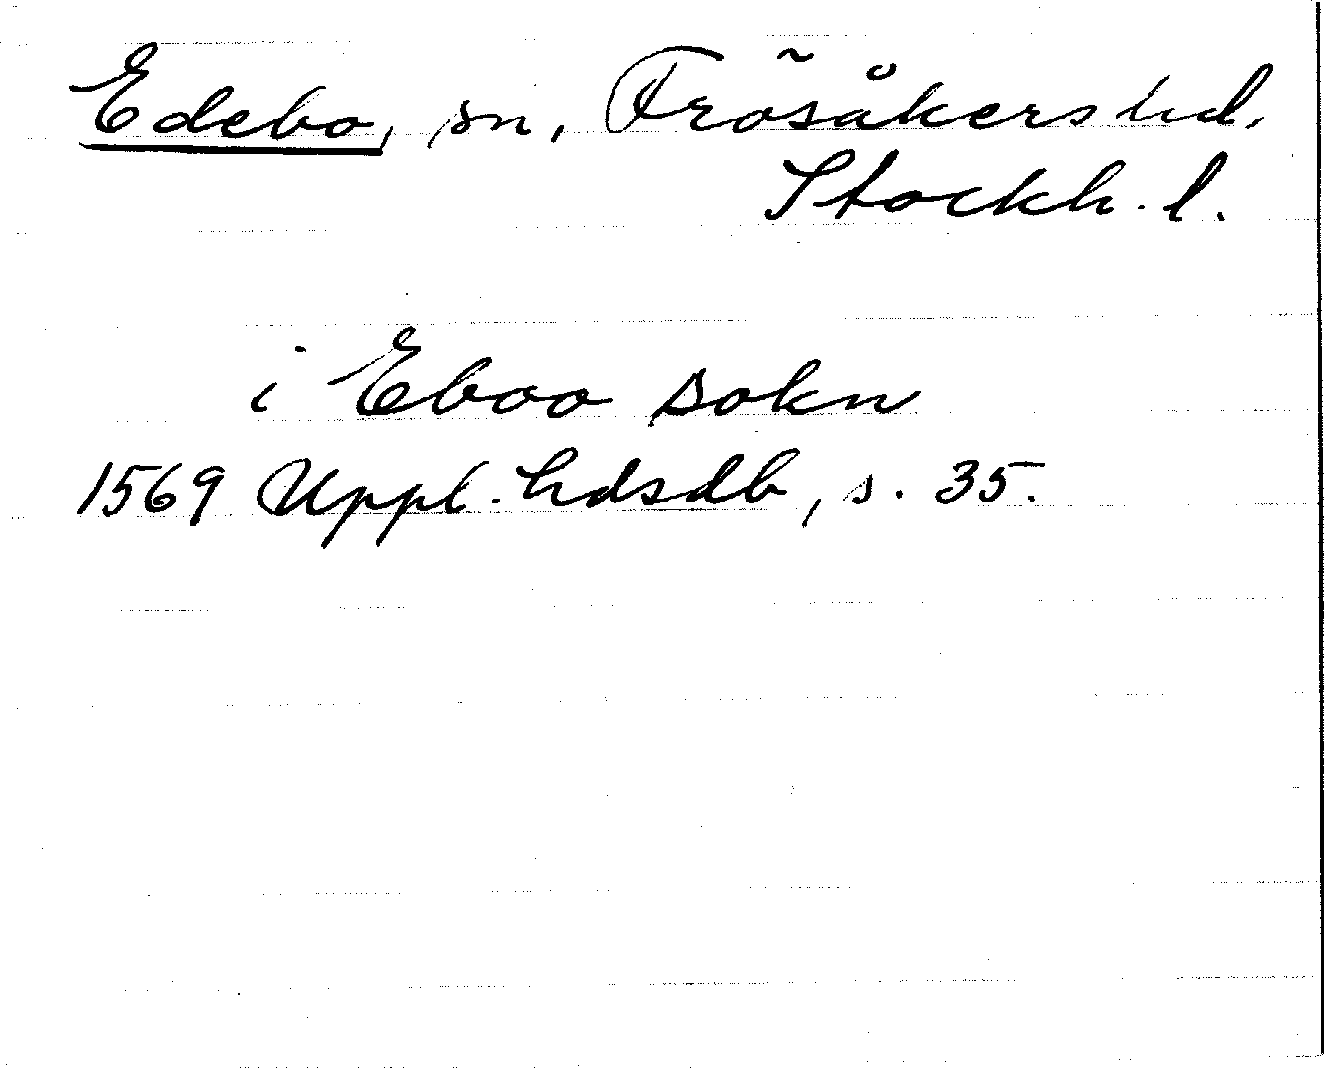 Edebo, sn, Frösåkers hd,
Stockh. l.
i Eboo sokn
1569 Uppl. hdsdb, s. 35.